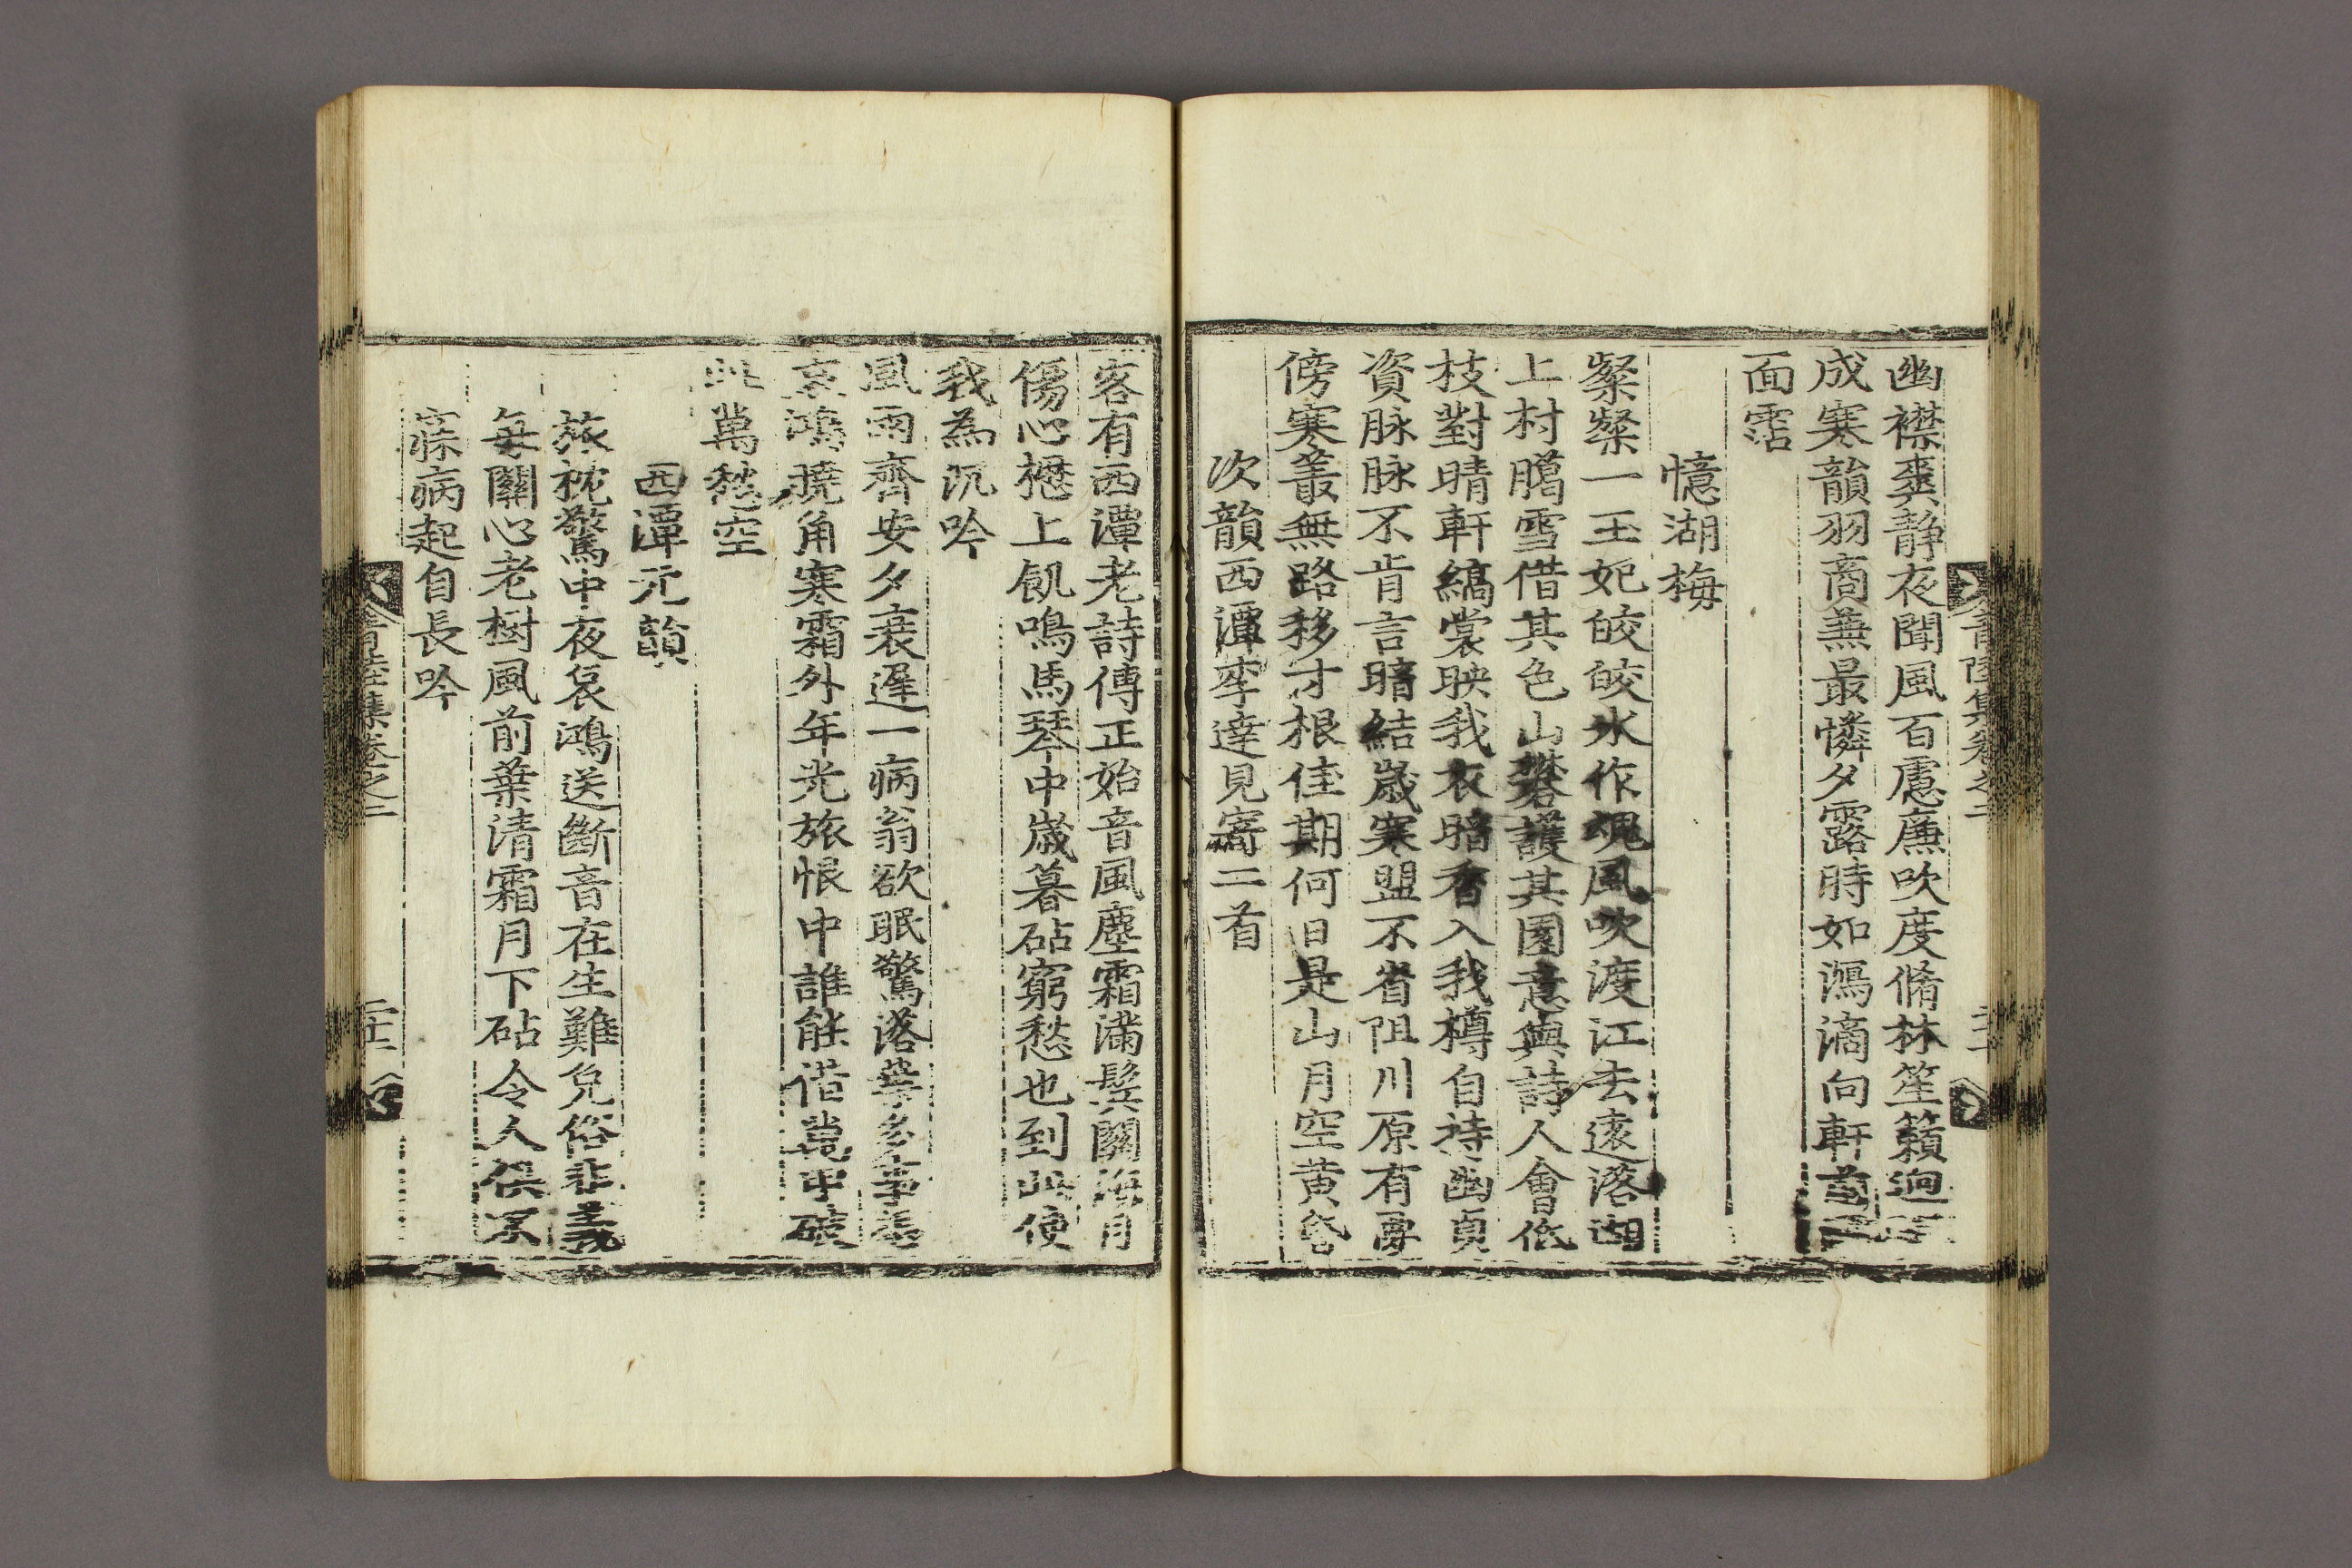 幽襟爽静夜聞風百慮廉吹度脩林笙籟迥
成寒韻羽商蕪最憐夕露時如瀉滴向軒前
面霑
憶湖梅
粲粲一玉妃皎皎氷作魂風吹渡江去遠落湖
上村臈雪借其色山礬護其園意與詩人會低
枝對晴軒縞裳映我衣暗香入我樽自持幽貞
資脉脉不肯言暗結歲寒盟不省阻川原有夢
傍寒叢無路移寸根佳期何日是山月空黄昏
次韻西潭李達見寄二首
客有西潭老詩傳正始音風塵霜滿鬂關海月
傷心櫪上飢鳴馬琴中歲暮砧窮愁也到此使
我為沉吟
風雨齊安夕衰遲一病翁欲眠驚落葉多事
哀鴻曉角寒霜外年光旅恨中誰能借
此萬愁空
西潭元韻
旅枕驚中夜哀鴻送斷音在生難免俗非
每關心老樹風前葉清霜月下砧令人俱不
寐病起自長吟
集卷之二